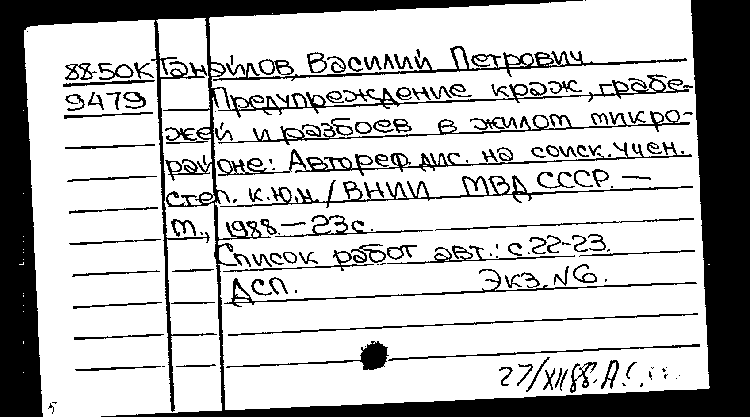 88-50К Танайлов, Василий Петрович.
9479 Предупреждение краж, грабе-
жей и разбоев в жилом микро-
районе: Автореф. дис. на соиск. учен.
степ. к.ю.н. / ВНИИ МВД СССР. —
М., 1988. — 23 с.
Список работ авт.: с. 22-23.
ДСП. Экз. N6.
27/XII88.